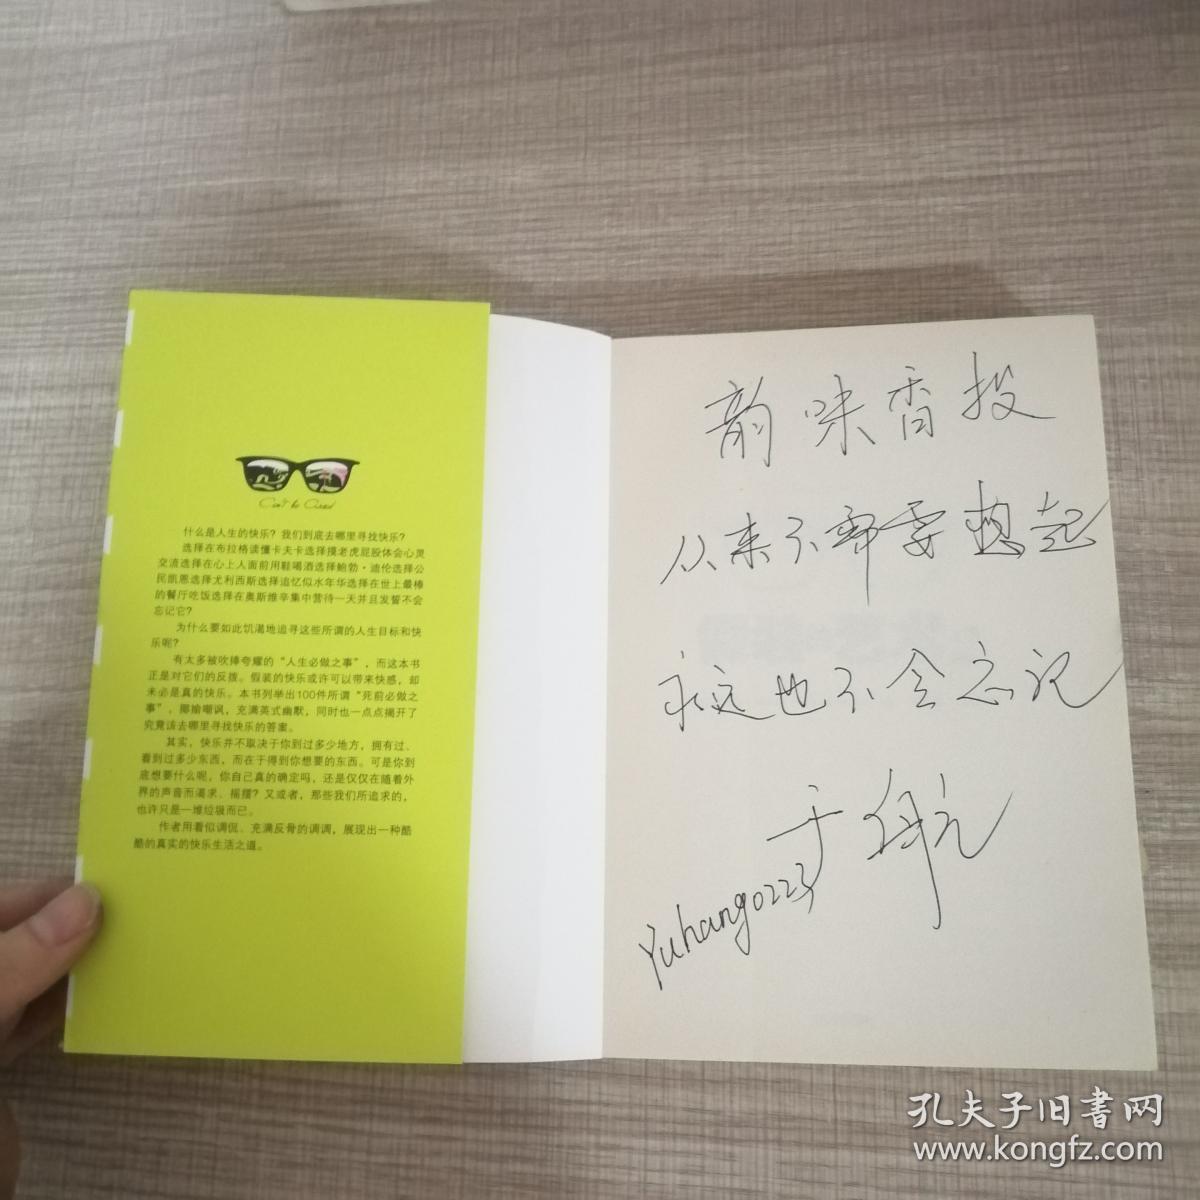 Can't be Cured
什么是人生的快乐？我们到底去哪里寻找快乐？
选择在布拉格读懂卡夫卡选择摸老虎屁股体会心灵
交流选择在心上人面前用鞋喝酒选择鲍勃·迪伦选择公
民凯恩选择尤利西斯选择追忆似水年华选择在世上最棒
的餐厅吃饭选择在奥斯维辛集中营待一天并且发誓不会
忘记它？
为什么要如此饥渴地追寻这些所谓的人生目标和快
乐呢？
有太多被吹捧夸耀的“人生必做之事”，而这本书
正是对它们的反拨。假装的快乐或许可以带来快感，却
未必是真的快乐。本书列举出100件所谓“死前必做之
事”，揶揄嘲讽，充满英式幽默，同时也一点点揭开了
究竟该去哪里寻找快乐的答案。
其实，快乐并不取决于你到过多少地方，拥有过、
看到过多少东西，而在于得到你想要的东西。可是你到
底想要什么呢，你自己真的确定吗，还是仅仅在随着外
界的声音而渴求、摇摆？又或者，那些我们所追求的，
也许只是一堆垃圾而已。
作者用看似调侃、充满反骨的调调，展现出一种酷
酷的真实的快乐生活之道。
韵味香投
从来不需要想起
永远也不会忘记
于航
Yuhang0223
孔夫子旧書网
www.kongfz.com